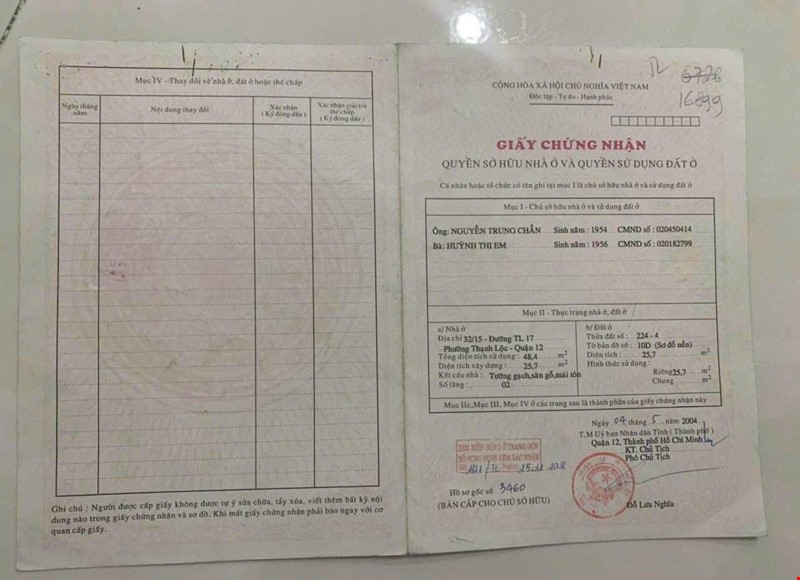 Mục IV - Thay đổi về nhà ở, đất ở hoặc thế chấp
Ngày tháng năm
Nội dung thay đổi
Xác nhận (Ký đóng dấu)
Xác nhận giải trừ thế chấp (Ký đóng dấu)
Ghi chú : Người được cấp giấy không được tự ý sửa chữa, tẩy xóa, viết thêm bất kỳ nội
dung nào trong giấy chứng nhận và sơ đồ. Khi mất giấy chứng nhận phải báo ngay với cơ
quan cấp giấy.
TL
6728
16899
CỘNG HÒA XÃ HỘI CHỦ NGHĨA VIỆT NAM
Độc lập - Tự do - Hạnh phúc
GIẤY CHỨNG NHẬN
QUYỀN SỞ HỮU NHÀ Ở VÀ QUYỀN SỬ DỤNG ĐẤT Ở
Cá nhân hoặc tổ chức có tên ghi tại mục I là chủ sở hữu nhà ở và sử dụng đất ở
Mục I - Chủ sở hữu nhà ở và sử dụng đất ở
Ông: NGUYỄN TRUNG CHẮN Sinh năm : 1954 CMND số : 020450414
Bà: HUỲNH THỊ EM Sinh năm : 1956 CMND số : 020182799
Mục II - Thực trạng nhà ở, đất ở
a/ Nhà ở
Địa chỉ 32/15 - Đường TL 17
Phường Thạnh Lộc - Quận 12
Tổng diện tích sử dụng : 48,4 m2
Diện tích xây dựng : 25,7 m2
Kết cấu nhà : Tường gạch,sàn gỗ,mái tôn
Số tầng : 02
b/ Đất ở
Thửa đất số : 224 - 4
Tờ bản đồ số : 10D (Sơ đồ nền)
Diện tích : 25,7 m2
Hình thức sử dụng :
Riêng 25,7 m2
Chung m2
Mục IIc, Mục III, Mục IV ở các trang sau là thành phần của giấy chứng nhận này
Ngày 04 tháng 5 năm 2004
T.M Uỷ ban Nhân dân Tỉnh ( Thành phố )
Quận 12, Thành phố Hồ Chí Minh
KT. Chủ Tịch
Phó Chủ Tịch
Hồ sơ gốc số 3460
(BẢN CẤP CHO CHỦ SỞ HỮU)
Đỗ Lưu Nghĩa